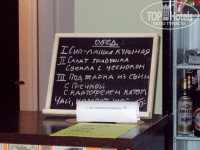 TOP Hotels
ОБЕД
I СУП-ЛАПША КУРИНАЯ
II САЛАТ ТРАВУШКА
СВЕКЛА С ЧЕСНОКОМ
III ПОДЖАРКА ИЗ СВИН
С ГРЕЧКОЙ
С КАРТОФЕЛЕМ
ЧАЙ,